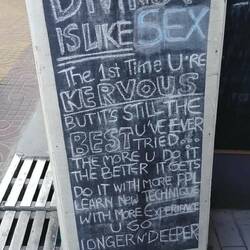 DIVING
IS LIKE SEX
The 1st Time U'RE
KERVOUS
BUT ITS STILL THE
BEST U'VE EVER
TRIED...
THE MORE U DO IT
THE BETTER IT GETS
DO IT WITH MORE PPL
LEARN NEW TECHNIQUE
WITH MORE EXPERIENCE
U GO
LONGER N' DEEPER